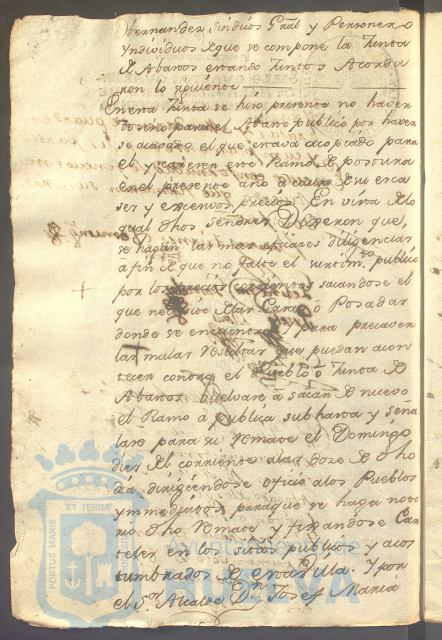 Hernandez, Sindico Gral y Personero
Yndividuos de que se compone la Junta
de Abastos estando Juntos Acorda
ron lo siguiente
En esta Junta se hizo presente no haver
tosino para el Abasto publico por haver
se acavado el que estava acopiado para
el y careser este Ramo de postura
en el presente año a causa de su esca
ses y excesivos precios. En vista de lo
qual dhos Señores Dixeron que,
se hagan las mas eficases diligencias
a fin de que no falte el surtimto publico
por los precios corrientes sacandose el
que nesesite de las Casas o Posadas
donde se encuentre para precaver
las malas resultas que puedan acon
tecer contra el Pueblo o Junta de
Abastos buelvase a sacar de nuevo
el Ramo a publica subhasta y seña
lase para su remate el Domingo
diez del corriente a las doze de dho
dia, dirigiendose oficio a los Pueblos
ynmediatos para que se haga noto
rio dho remate y fixandose Car
teles en los sitios publicos y acos
tumbrados de esta Villa. Y por
el Sor Alcalde Dn Josef Maria
PORTUS MARIS
ET TERRAE
Ayuntamiento de
HUELVA